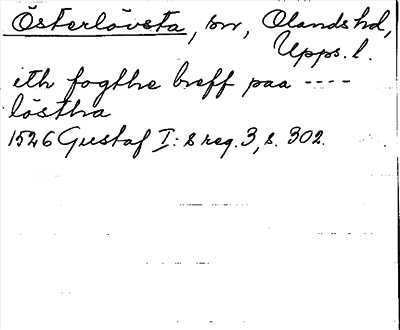 Österlövsta, sn, Olands hd,
Upps. l.
ith fogthe breff paa ----
löstha
1526 Gustaf I:s reg. 3, s. 302.